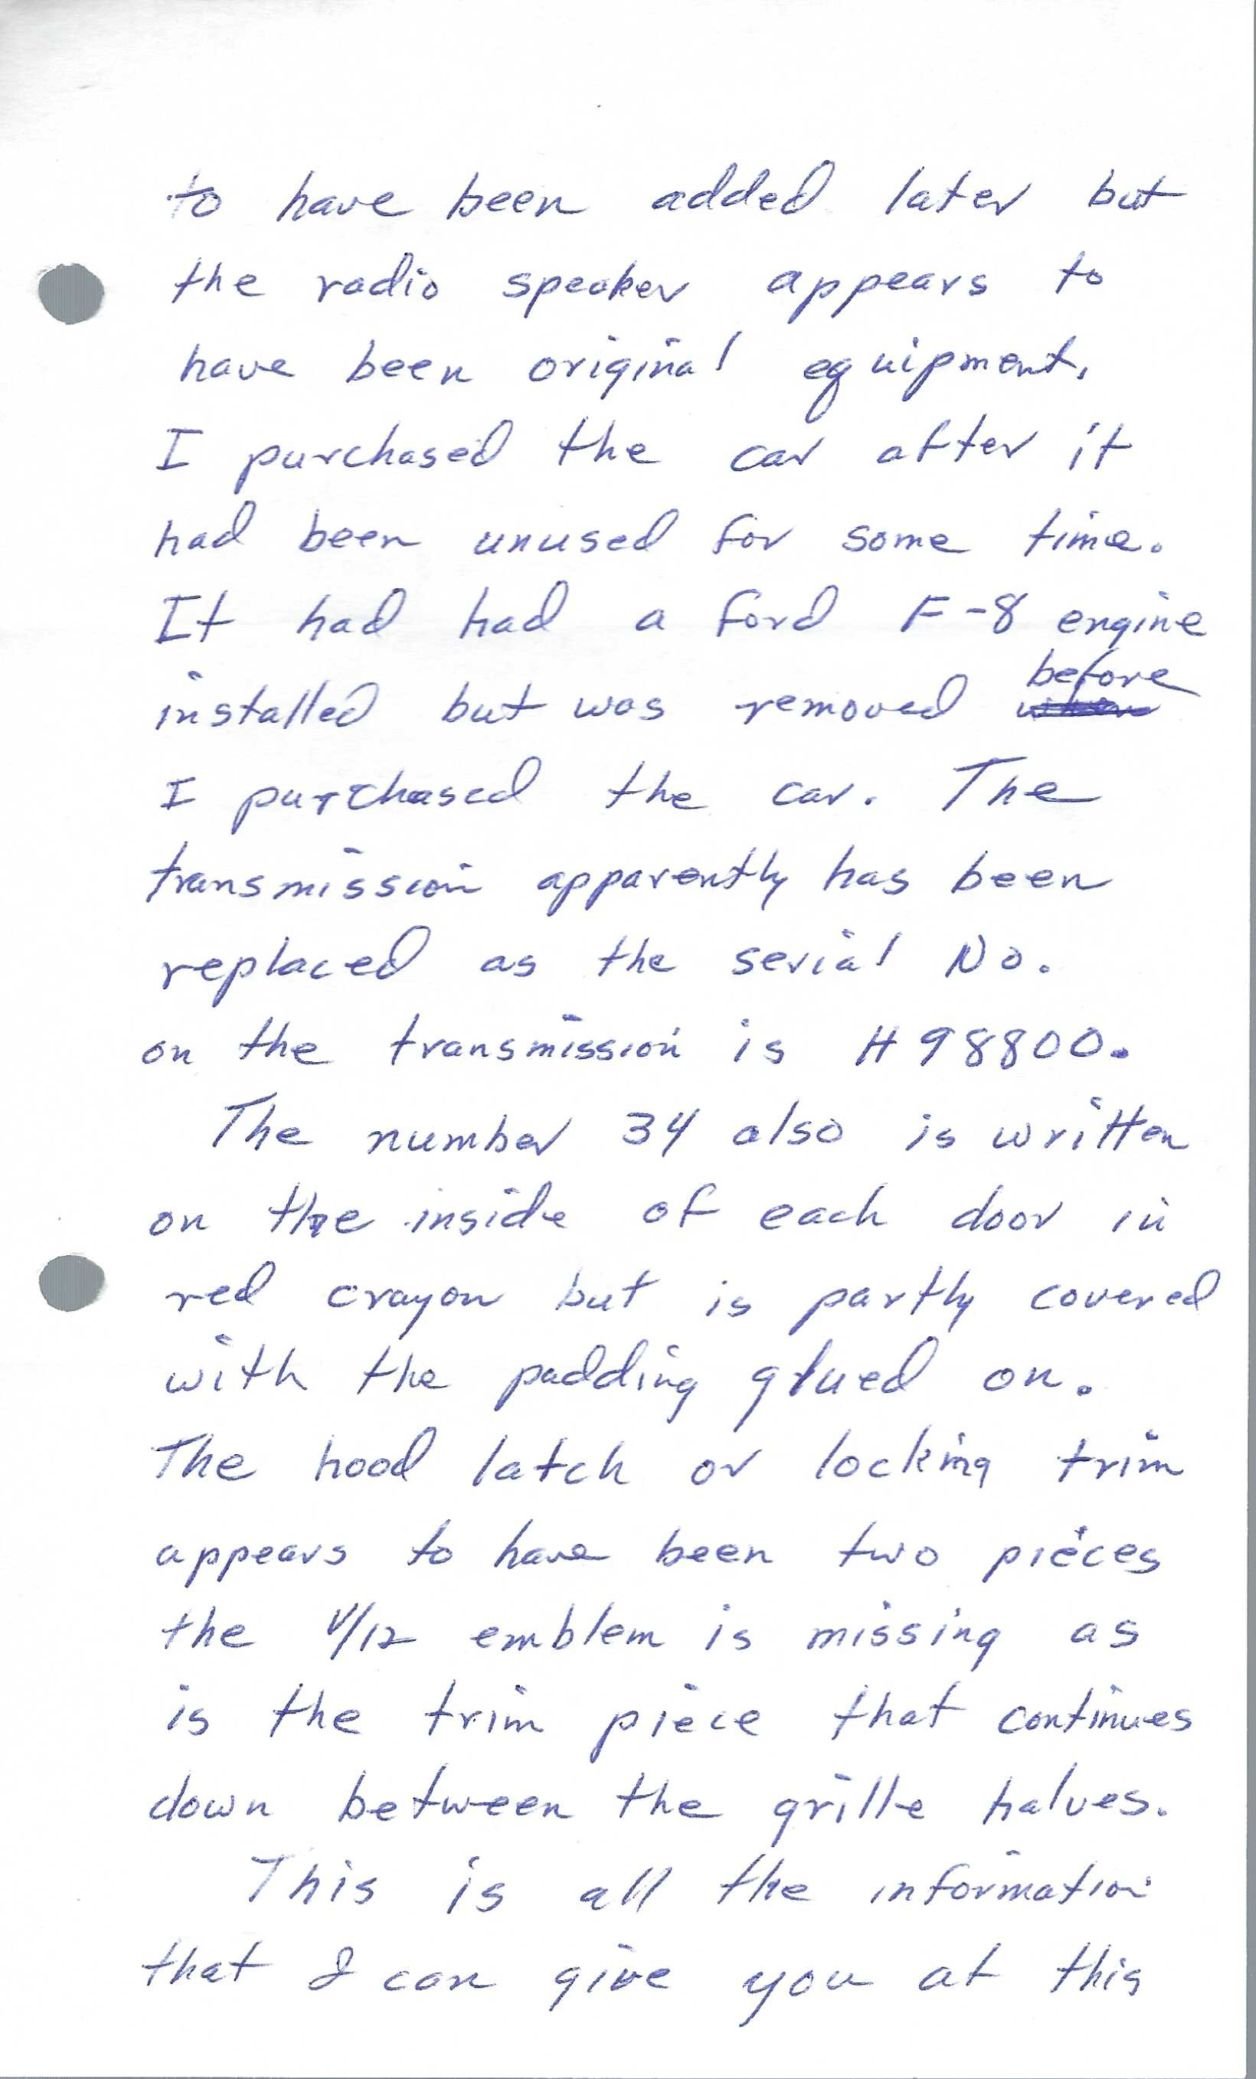 to have been added later but
the radio speaker appears to
have been original equipment.
I purchased the car after it
had been unused for some time.
It had had a Ford F-8 engine
before
installed but was removed
I purchased the car. The
transmission apparently has been
replaced as the serial No.
on the transmission is H98800.
The number 34 also is written
on the inside of each door in
red crayon but is partly covered
with the padding glued on.
The hood latch or locking trim
appears to have been two pieces
the V/12 emblem is missing as
is the trim piece that continues
down between the grille halves.
This is all the information
that I can give you at this